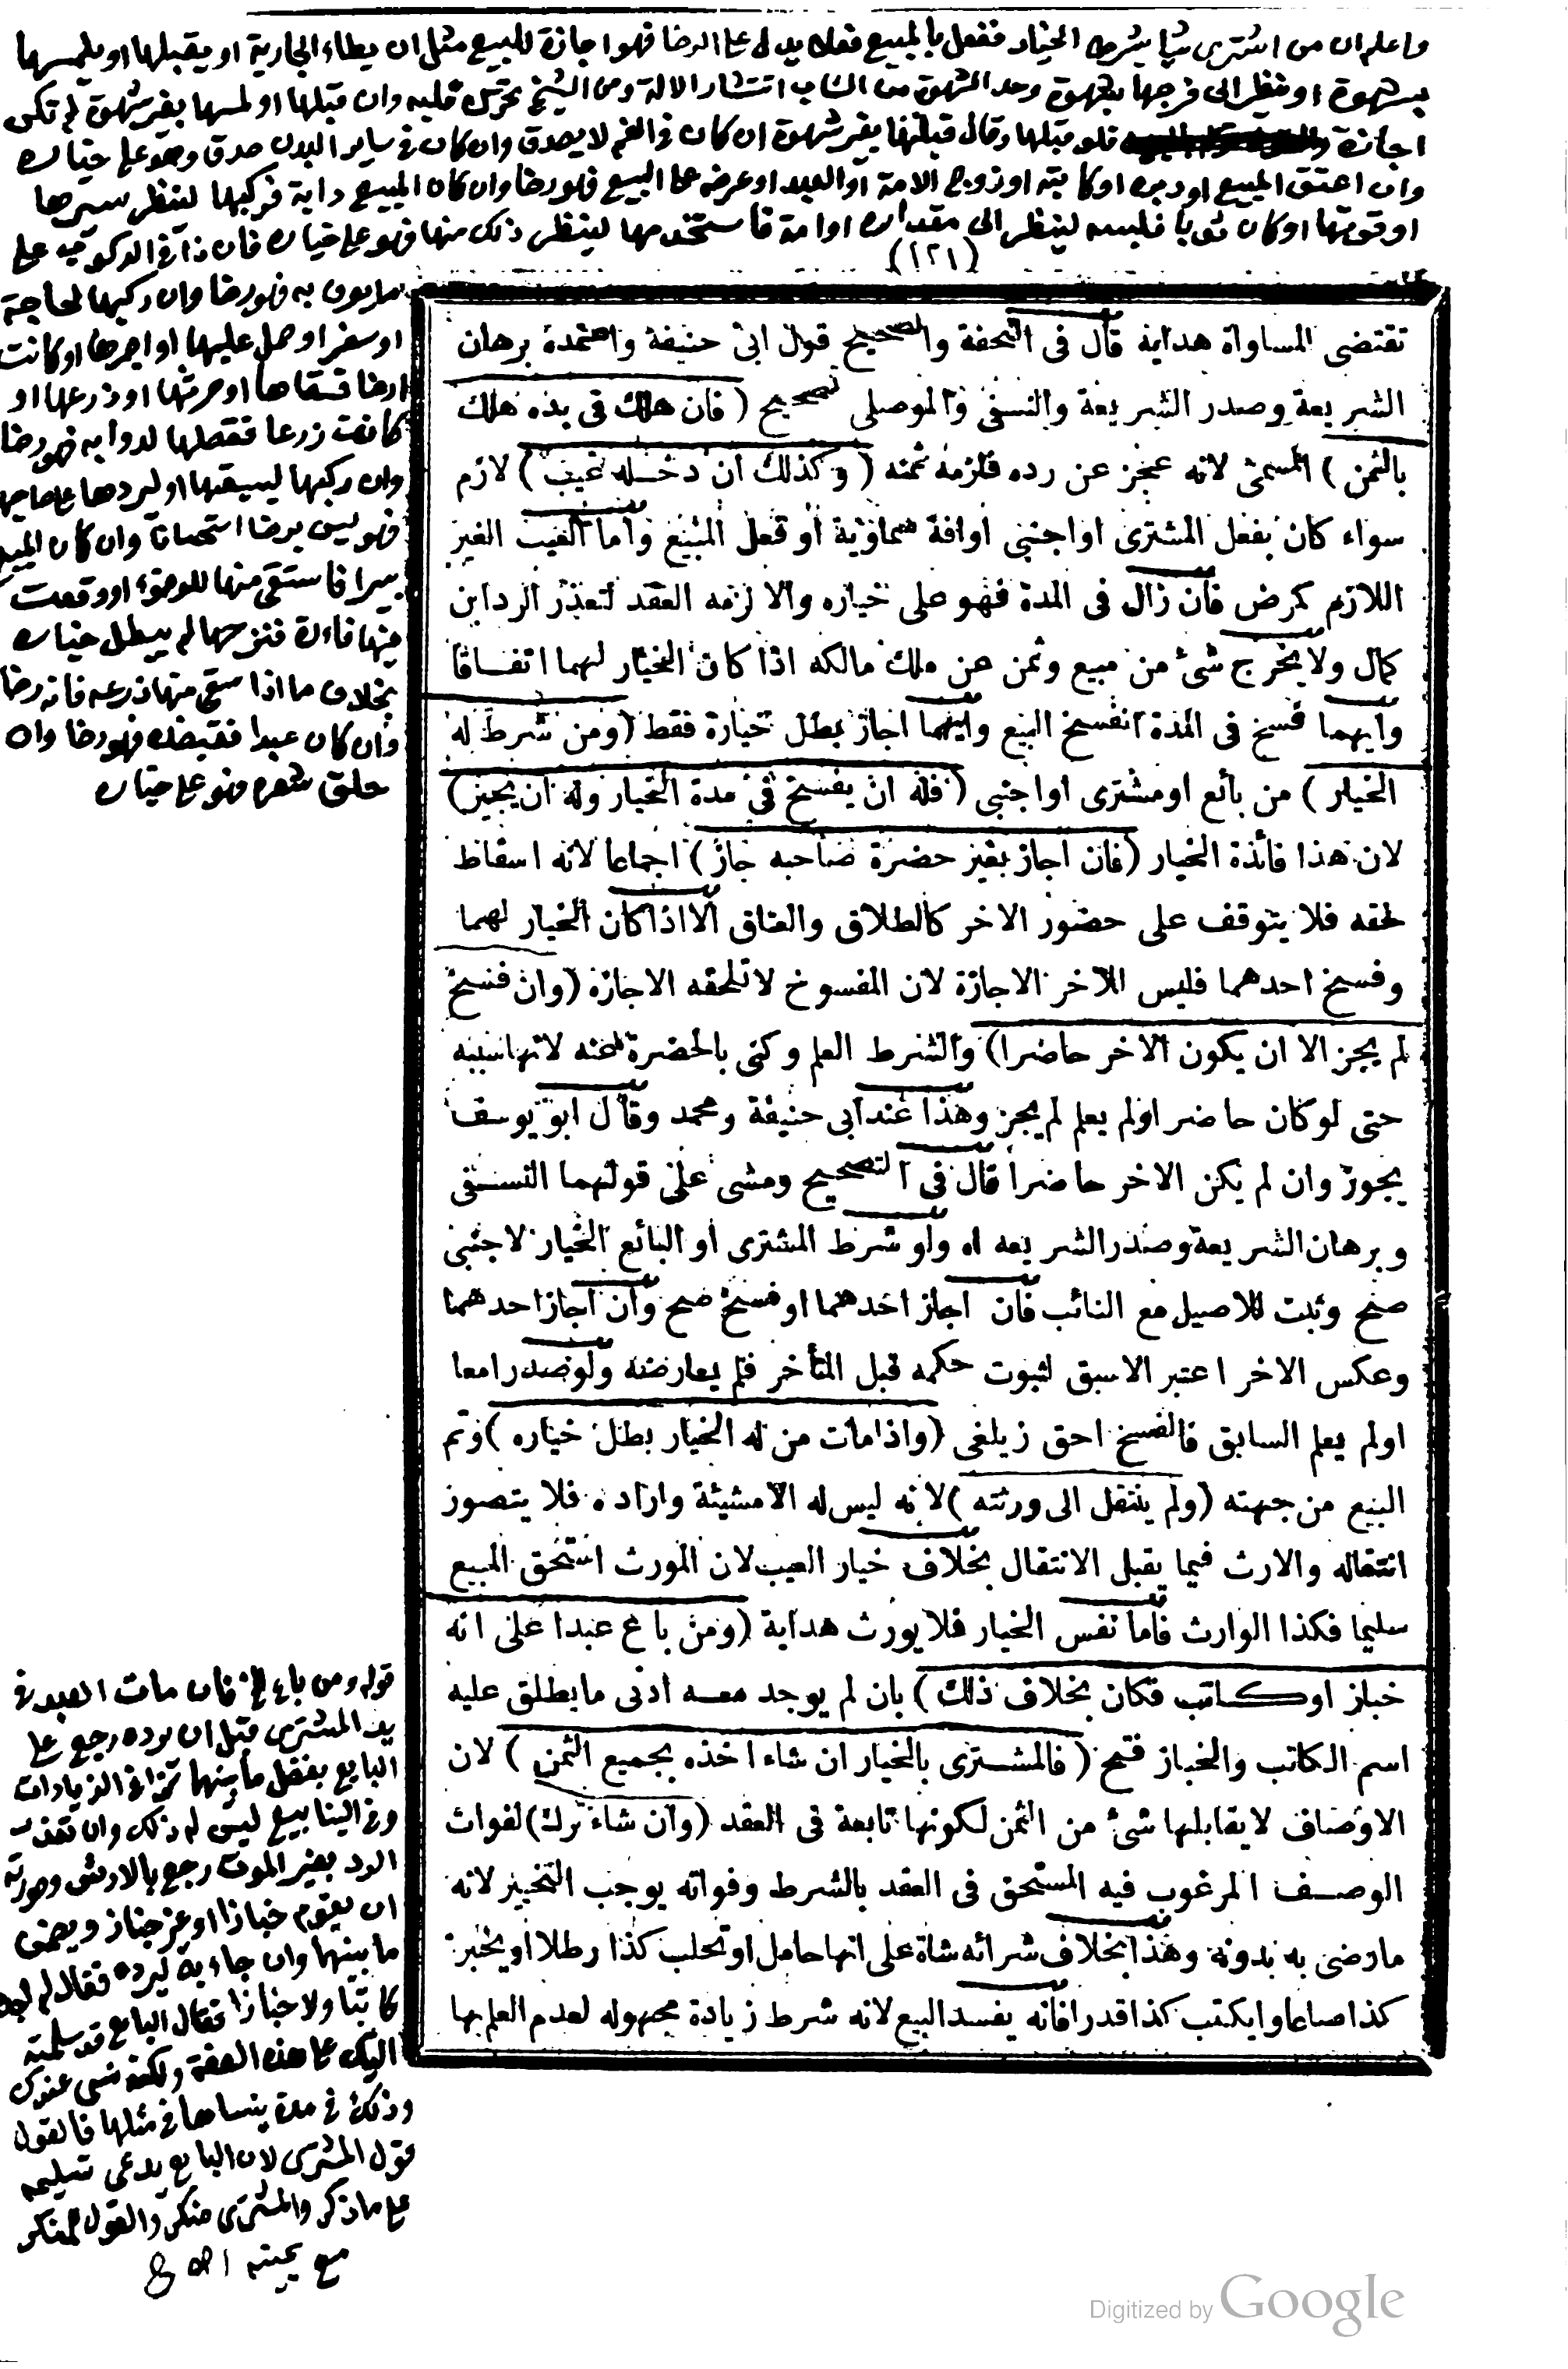 واعلم ان من اشترى شيا بشرط الخيار ففعل بالمبيع فعلا يدل على الرضا فهو اجازة للبيع مثل ان يطاء الجارية او يقبلها او يلمسها
بشهوة او ينظر الى فرجها بشهوة وحد الشهوة من الشاب انتشار الالة ومن الشيخ تحرك قلبه وان قبلها او لمسها بغير شهوة لم تكن
اجازة فلو قبلها وقال قبلتها بغير شهوة ان كان فى الفم لا يصدق وان كان فى ساير البدن صدق وهو على خياره
وان اعتق المبيع او دبره او كاتبه او زوج الامة او العبد او عرضه على البيع فهو رضا وان كان المبيع دابة فركبها لينظر سيرها
او قوتها او كان ثوبا فلبسه لينظر الى مقداره او امة فاستخدمها لينظر ذلك منها فهو على خياره فان زاد فى الركوب على
(١٢١)
ما يعرف به فهو رضا وان ركبها لحاجة
او سفر او حمل عليها او اجرها او كانت
ارضا فسقاها او حرثها او زرعها او
كانت زرعا ففصلها لدوابه فهو رضا
وان ركبها ليسقيها او ليردها على صاحبها
فهو ليس برضا استحسانا وان كان المبيع
بيرا فاستقى منها للوضوء او وقعت
فيها فاءرة فنزحها لم يبطل خياره
بخلاف ما اذا سقى منها زرعه فانه رضا
وان كان عبدا ففصده فهو رضا وان
حلق شعره فهو على خياره
تقتضى المساواة هداية قال فى التحفة والصحيح قول ابى حنيفة واعتمده برهان
الشريعة وصدر الشريعة والنسفى والموصلى تصحيح (فان هلك فى يده هلك
بالثمن) المسمى لانه عجز عن رده فلزمه ثمنه (وكذلك ان دخله عيب) لازم
سواء كان بفعل المشترى او اجنبى او افة سماوية او فعل المبيع واما العيب الغير
اللازم كمرض فان زال فى المدة فهو على خياره والا لزمه العقد لتعذر الرد ابن
كمال ولا يخرج شئ من مبيع وثمن عن ملك مالكه اذا كان الخيار لهما اتفاقا
وايهما فسخ فى المدة انفسخ البيع وايهما اجاز بطل خياره فقط (ومن شرط له
الخيار) من بائع او مشترى او اجنبى (فله ان يفسخ فى مدة الخيار وله ان يجيز)
لان هذا فائدة الخيار (فان اجاز بغير حضرة صاحبه جاز) اجماعا لانه اسقاط
لحقه فلا يتوقف على حضور الاخر كالطلاق والعتاق الا اذا كان الخيار لهما
وفسخ احدهما فليس للآخر الاجازة لان المفسوخ لا تلحقه الاجازة (وان فسخ
لم يجز الا ان يكون الاخر حاضرا) والشرط العلم وكنى بالحضرة عنه لانها سببه
حتى لو كان حاضرا ولم يعلم لم يجز وهذا عند ابى حنيفة ومحمد وقال ابو يوسف
يجوز وان لم يكن الاخر حاضرا قال فى التصحيح ومشى على قولهما النسفى
وبرهان الشريعة وصدر الشريعه اه ولو شرط المشترى او البائع الخيار لاجنبى
صح وثبت للاصيل مع النائب فان اجاز احدهما او فسخ صح وان اجاز احدهما
وعكس الاخر اعتبر الاسبق لثبوت حكمه قبل المتأخر فلم يعارضه ولو صدرا معا
او لم يعلم السابق فالفسخ احق زيلعى (واذا مات من له الخيار بطل خياره) وتم
البيع من جهته (ولم ينتقل الى ورثته) لانه ليس له الا مشيئة وارادة فلا يتصور
انتقاله والارث فيما يقبل الانتقال بخلاف خيار العيب لان المورث استحق المبيع
سليما فكذا الوارث فاما نفس الخيار فلا يورث هداية (ومن باع عبدا على انه
خباز او كاتب فكان بخلاف ذلك) بان لم يوجد معه ادنى ما يطلق عليه
اسم الكاتب والخباز فتح (فالمشترى بالخيار ان شاء اخذه بجميع الثمن) لان
الاوصاف لا يقابلها شئ من الثمن لكونها تابعة فى العقد (وان شاء ترك) لفوات
الوصف المرغوب فيه المستحق فى العقد بالشرط وفواته يوجب التخيير لانه
ما رضى به بدونه وهذا بخلاف شرائه شاة على انها حامل او تحلب كذا رطلا او يخبز
كذا صاعا او يكتب كذا قدرا فانه يفسد البيع لانه شرط زيادة مجهوله لعدم العلم بها
قوله ومن باع الخ فان مات العبد فى
يد المشترى قبل ان يرده رجع على
البايع بفضل ما بينهما كذا فى الزيادات
وفى الينابيع ليس له ذلك وان تعذر
الرد بغير الموت رجع بالارش وصورته
ان يقوم خبازا او غير خباز ويضمن
ما بينهما وان جاء به ليرده فقال لم اجده
كاتبا ولا خبازا فقال البايع قد سلمته
اليك على هذه الصفة ولكنه نسى عندك
وذلك فى مدة ينساها فى مثلها فالقول
قول المشترى لان البايع يدعى تسليمه
على ما ذكر والمشترى منكر والقول للمنكر
مع يمينه اه
Digitized by Google